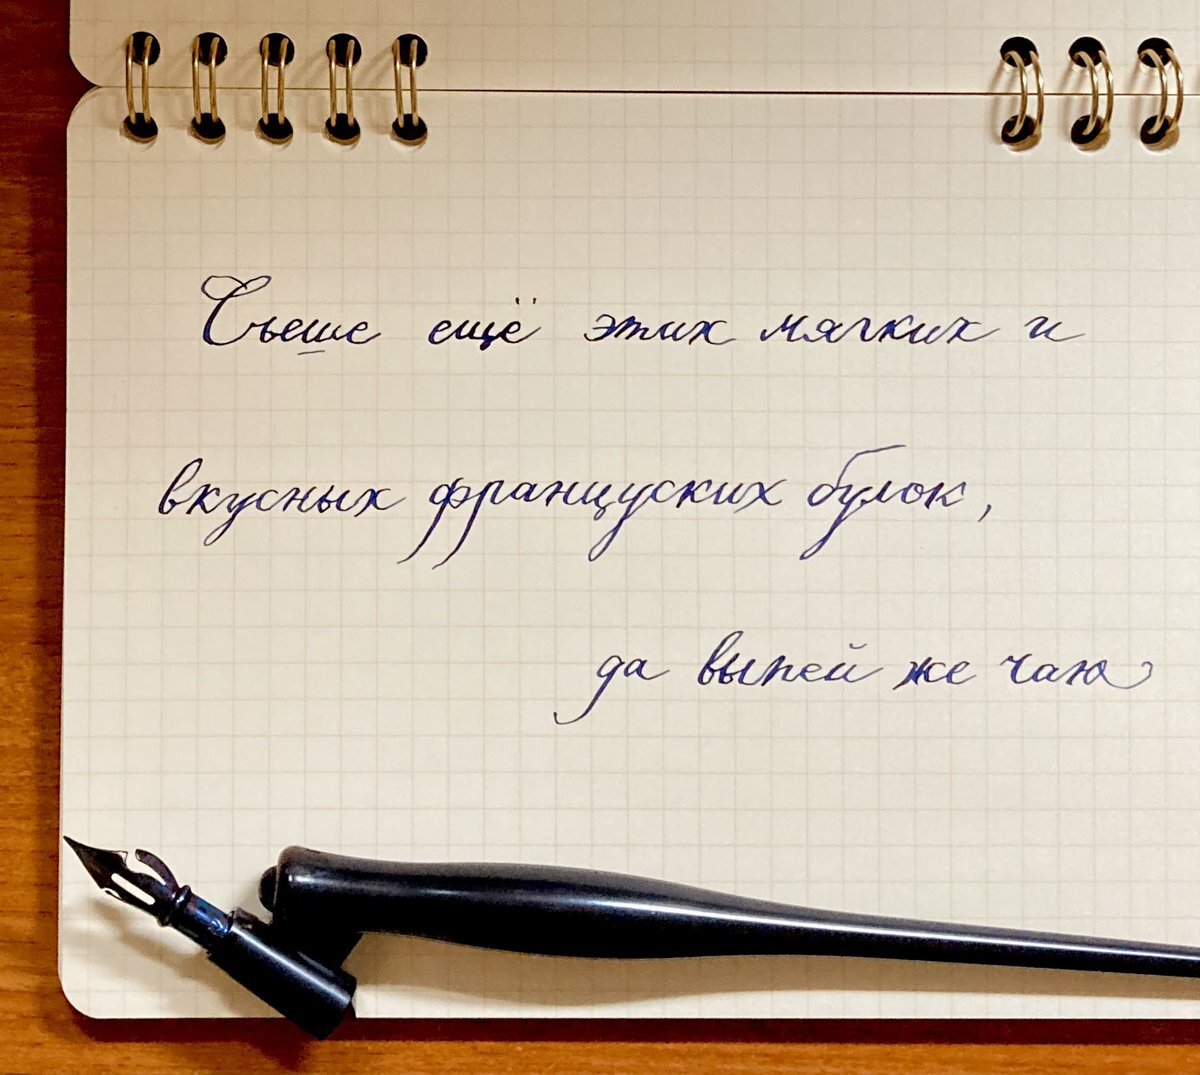 Съеше ещё этих мягких и
вкусных француских булок,
да выпей же чаю